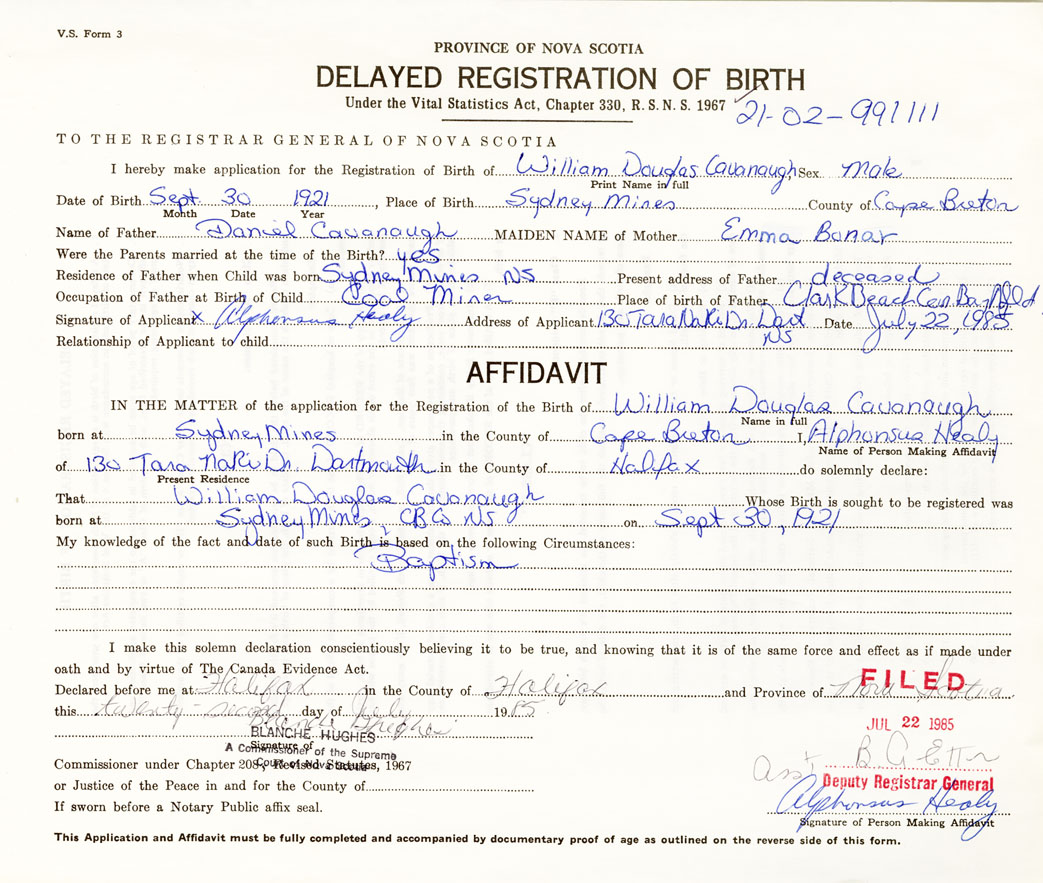 V.S. Form 3
PROVINCE OF NOVA SCOTIA
DELAYED REGISTRATION OF BIRTH
Under the Vital Statistics Act, Chapter 330, R.S.N.S. 1967
21-02-991111
TO THE REGISTRAR GENERAL OF NOVA SCOTIA
I hereby make application for the Registration of Birth of William Douglas Cavanaugh Sex Male
Print Name in full
Date of Birth Sept 30 1921, Place of Birth Sydney Mines County of Cape Breton
Month Date Year
Name of Father Daniel Cavanaugh MAIDEN NAME of Mother Emma Bonar
Were the Parents married at the time of the Birth? yes
Residence of Father when Child was born Sydney Mines NS Present address of Father deceased
Occupation of Father at Birth of Child Coal Miner Place of birth of Father Clark Beach Con. Bay Nfld
Signature of Applicant X Alphonsus Healy Address of Applicant 130 Tara Naki Dr. Dart Date July 22, 1985
NS
Relationship of Applicant to child
AFFIDAVIT
IN THE MATTER of the application for the Registration of the Birth of William Douglas Cavanaugh
Name in full
born at Sydney Mines in the County of Cape Breton I, Alphonsus Healy
Name of Person Making Affidavit
of 130 Tara Naki Dr. Dartmouth in the County of Halifax do solemnly declare:
Present Residence
That William Douglas Cavanaugh Whose Birth is sought to be registered was
born at Sydney Mines, CB Co NS on Sept 30, 1921
My knowledge of the fact and date of such Birth is based on the following Circumstances:
Baptism
I make this solemn declaration conscientiously believing it to be true, and knowing that it is of the same force and effect as if made under
oath and by virtue of The Canada Evidence Act.
Declared before me at Halifax in the County of Halifax and Province of Nova Scotia
FILED
this twenty-second day of July 1985
JUL 22 1985
Blanche Hughes
BLANCHE HUGHES
Signature of
A Commissioner of the Supreme
Court of Nova Scotia
Commissioner under Chapter 208, Revised Statutes, 1967
Asst B G Etter
Deputy Registrar General
or Justice of the Peace in and for the County of
Alphonsus Healy
If sworn before a Notary Public affix seal.
Signature of Person Making Affidavit
This Application and Affidavit must be fully completed and accompanied by documentary proof of age as outlined on the reverse side of this form.